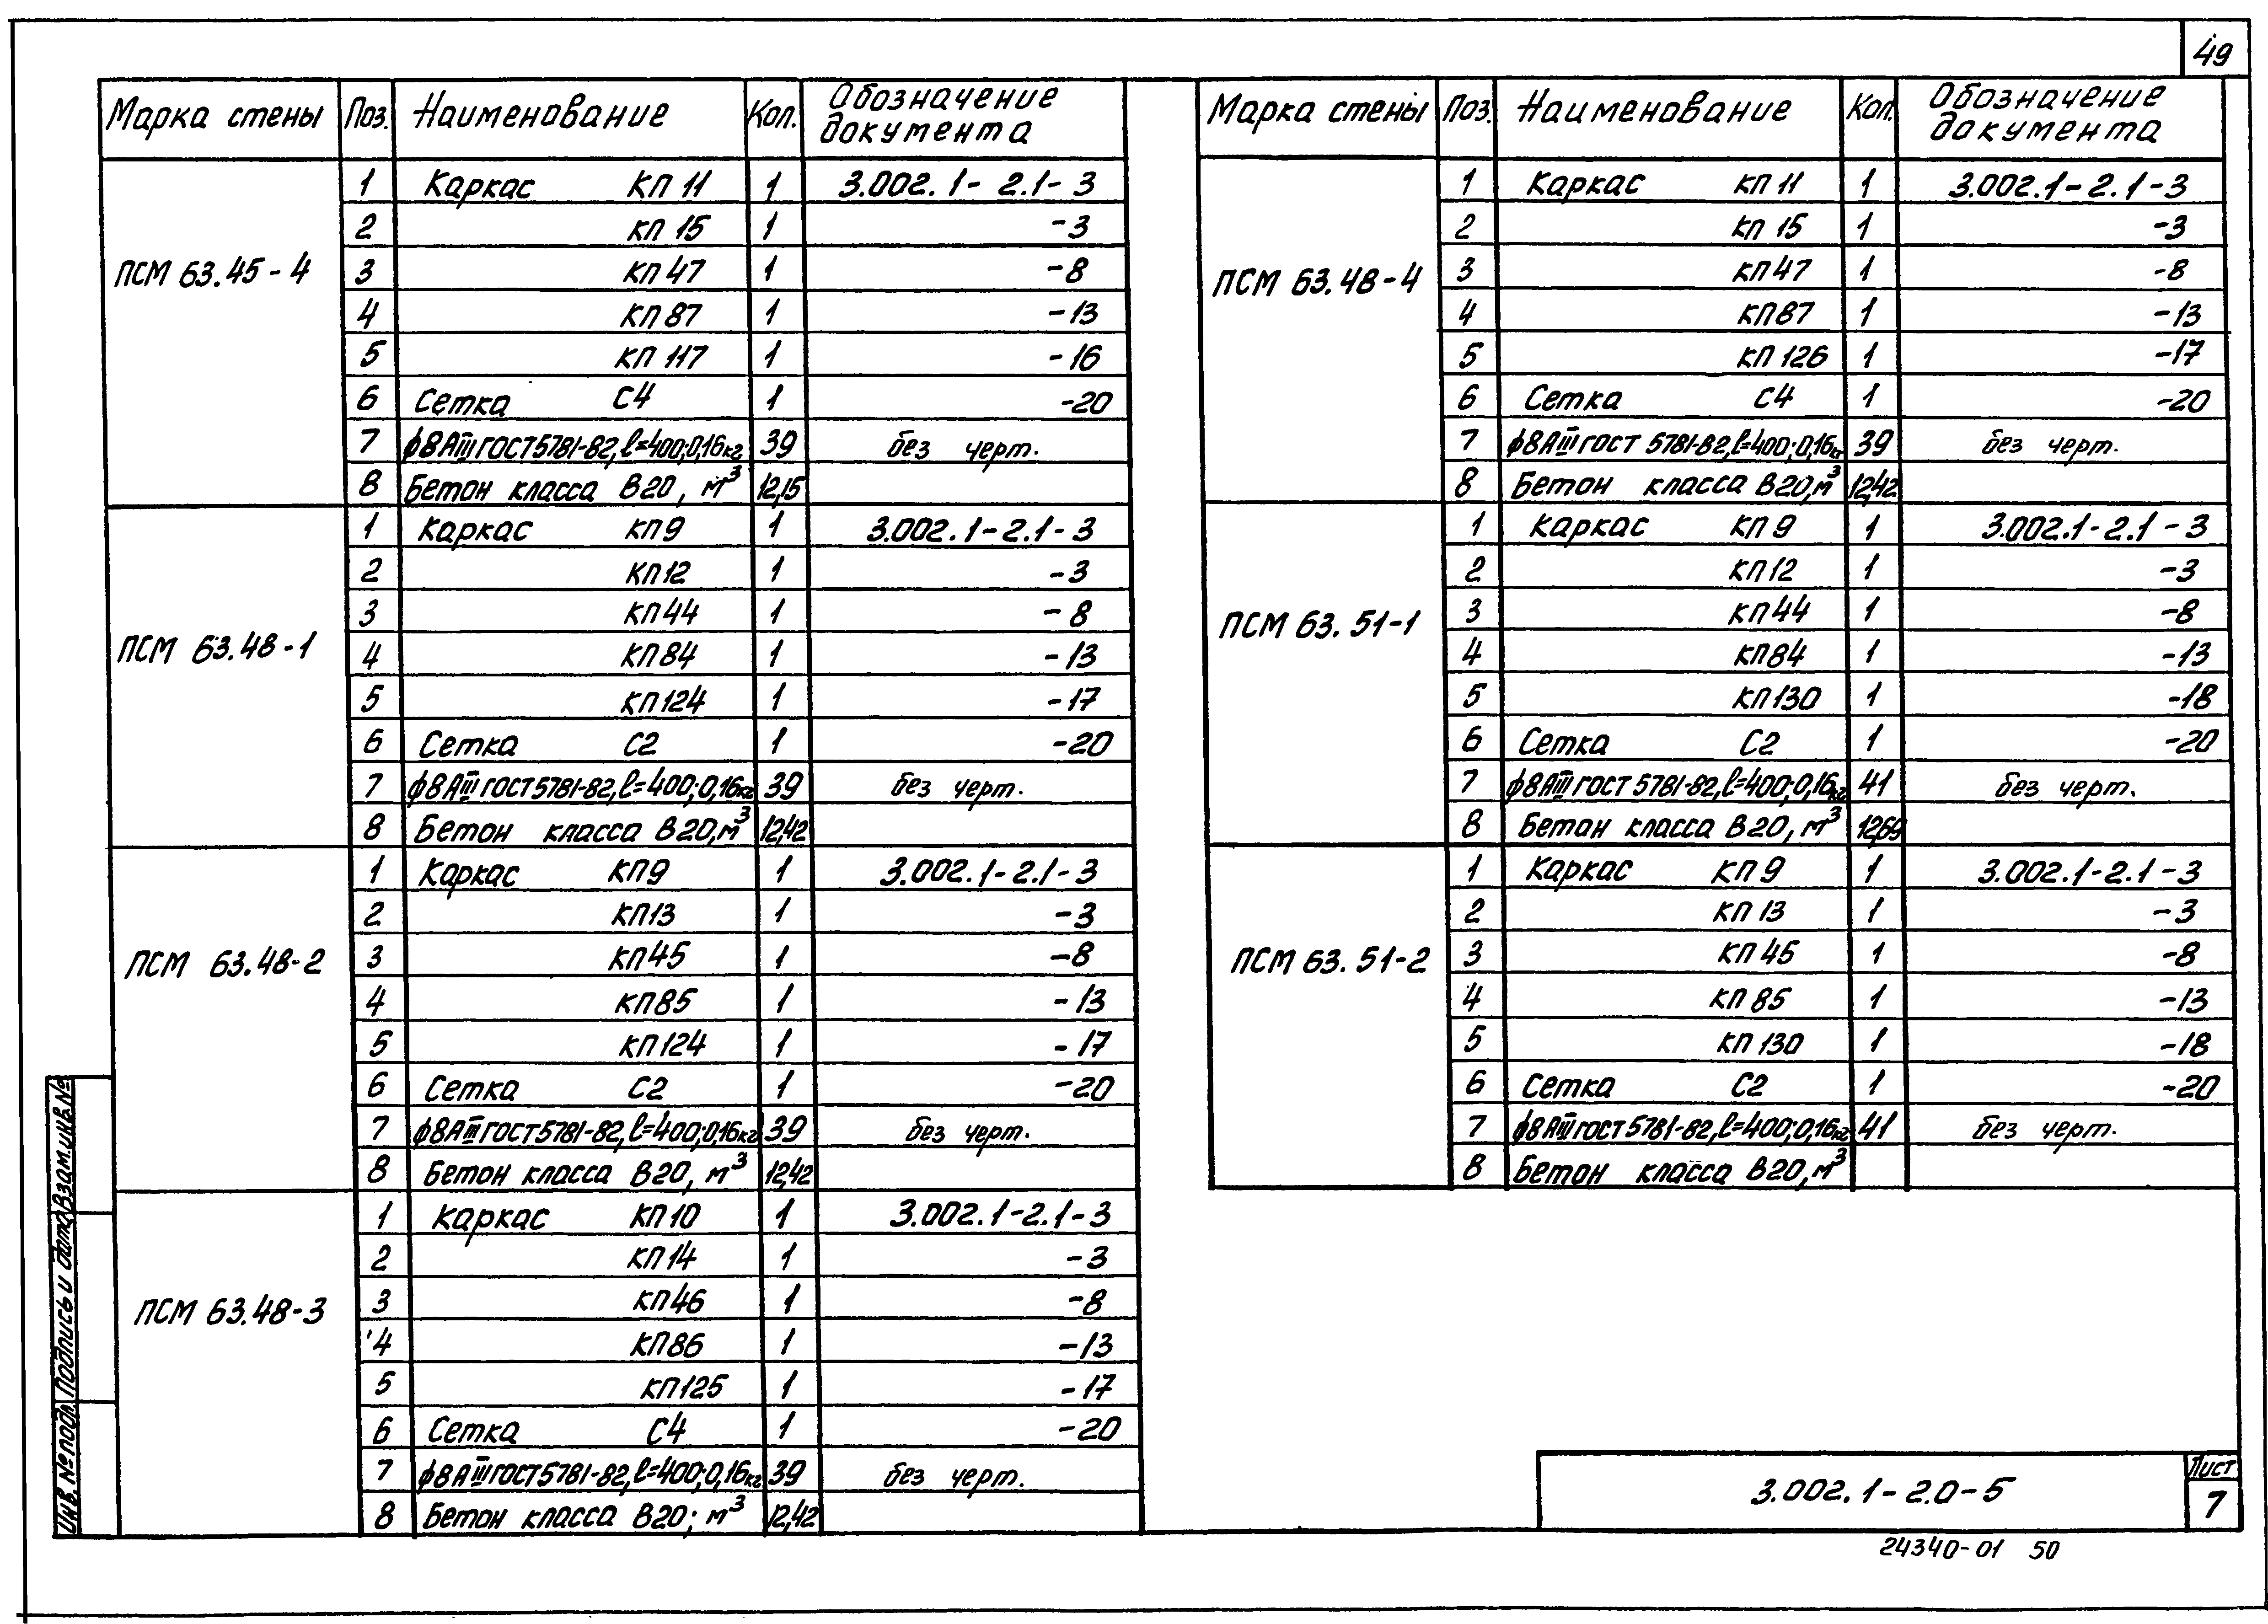 49
Марка стены Поз. Наименование Кол. Обозначение документа
ПСМ 63.45-4
1 Каркас КП 11 1 3.002.1-2.1-3
2 КП 15 1 -3
3 КП 47 1 -8
4 КП 87 1 -13
5 КП 117 1 -16
6 Сетка С4 1 -20
7 ф8АIII ГОСТ 5781-82, l=400; 0,16кг 39 без черт.
8 Бетон класса В20, м³ 12,15
ПСМ 63.48-1
1 Каркас КП9 1 3.002.1-2.1-3
2 КП12 1 -3
3 КП44 1 -8
4 КП84 1 -13
5 КП124 1 -17
6 Сетка С2 1 -20
7 ф8АIII ГОСТ 5781-82, l=400; 0,16кг 39 без черт.
8 Бетон класса В20, м³ 12,42
ПСМ 63.48-2
1 Каркас КП9 1 3.002.1-2.1-3
2 КП13 1 -3
3 КП45 1 -8
4 КП85 1 -13
5 КП124 1 -17
6 Сетка С2 1 -20
7 ф8АIII ГОСТ 5781-82, l=400; 0,16кг 39 без черт.
8 Бетон класса В20, м³ 12,42
ПСМ 63.48-3
1 Каркас КП10 1 3.002.1-2.1-3
2 КП14 1 -3
3 КП46 1 -8
4 КП86 1 -13
5 КП125 1 -17
6 Сетка С4 1 -20
7 ф8АIII ГОСТ 5781-82, l=400; 0,16кг 39 без черт.
8 Бетон класса В20; м³ 12,42
Марка стены Поз. Наименование Кол. Обозначение документа
ПСМ 63.48-4
1 Каркас КП 11 1 3.002.1-2.1-3
2 КП 15 1 -3
3 КП47 1 -8
4 КП87 1 -13
5 КП 126 1 -17
6 Сетка С4 1 -20
7 ф8АIII ГОСТ 5781-82, l=400; 0,16кг 39 без черт.
8 Бетон класса В20, м³ 12,42
ПСМ 63.51-1
1 Каркас КП 9 1 3.002.1-2.1-3
2 КП12 1 -3
3 КП44 1 -8
4 КП84 1 -13
5 КП130 1 -18
6 Сетка С2 1 -20
7 ф8АIII ГОСТ 5781-82, l=400; 0,16кг 41 без черт.
8 Бетон класса В20, м³ 12,69
ПСМ 63.51-2
1 Каркас КП 9 1 3.002.1-2.1-3
2 КП 13 1 -3
3 КП 45 1 -8
4 КП 85 1 -13
5 КП 130 1 -18
6 Сетка С2 1 -20
7 ф8АIII ГОСТ 5781-82, l=400; 0,16кг 41 без черт.
8 Бетон класса В20, м³
Инв. № подл. Подпись и дата Взам. инв. №
3.002.1-2.0-5
Лист
7
24340-01 50